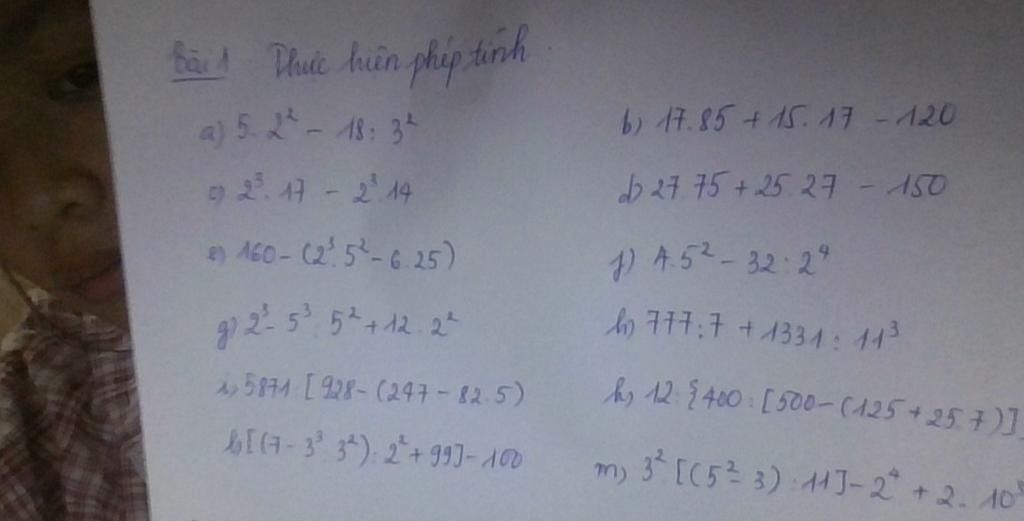 Bài 1 Thực hiện phép tính.
a) 5. 2² - 18 : 3²
b) 17.85 + 15.17 - 120
c) 2³. 17 - 2³.14
d) 27.75 + 25.27 - 150
e) 160 - (2³.5² - 6.25)
f) 4.5² - 32 : 2⁴
g) 2³ - 5³ : 5² + 12 . 2²
h) 777 : 7 + 1331 : 11³
i) 5871 : [928 - (247 - 82.5)
k) 12 : {400 : [500 - (125 + 25.7)]
[(7 - 3³ : 3²) : 2² + 99] - 100
m) 3² . [(5² - 3) : 11] - 2⁴ + 2. 10³